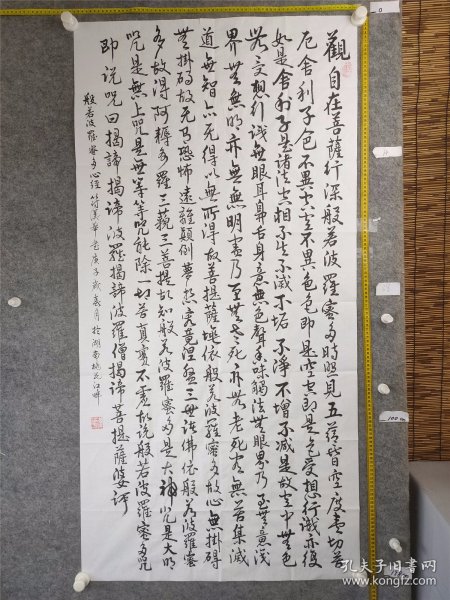 觀自在菩薩行深般若波羅蜜多時照見五蘊皆空度一切苦
厄舍利子色不異空空不異色色即是空空即是色受想行識亦復
如是舍利子是諸法空相不生不滅不垢不淨不增不減是故空中無色
無受想行識無眼耳鼻舌身意無色聲香味觸法無眼界乃至無意識
界無無明亦無無明盡乃至無老死亦無老死盡無苦集滅
道無智亦无得以無所得故菩提薩埵依般若波羅蜜多故心無掛礙
無掛礙故无有恐怖遠離顛倒夢想究竟涅槃三世諸佛依般若波羅蜜
多故得阿耨多羅三藐三菩提故知般若波羅蜜多是大神咒是大明
咒是無上咒是無等等咒能除一切苦真實不虛故說般若波羅蜜多咒
即說咒曰揭諦揭諦波羅揭諦波羅僧揭諦菩提薩婆訶
般若波羅蜜多心經
庚子
湖南桃花江畔
100cm
孔夫子旧书网
https://book.kongfz.com